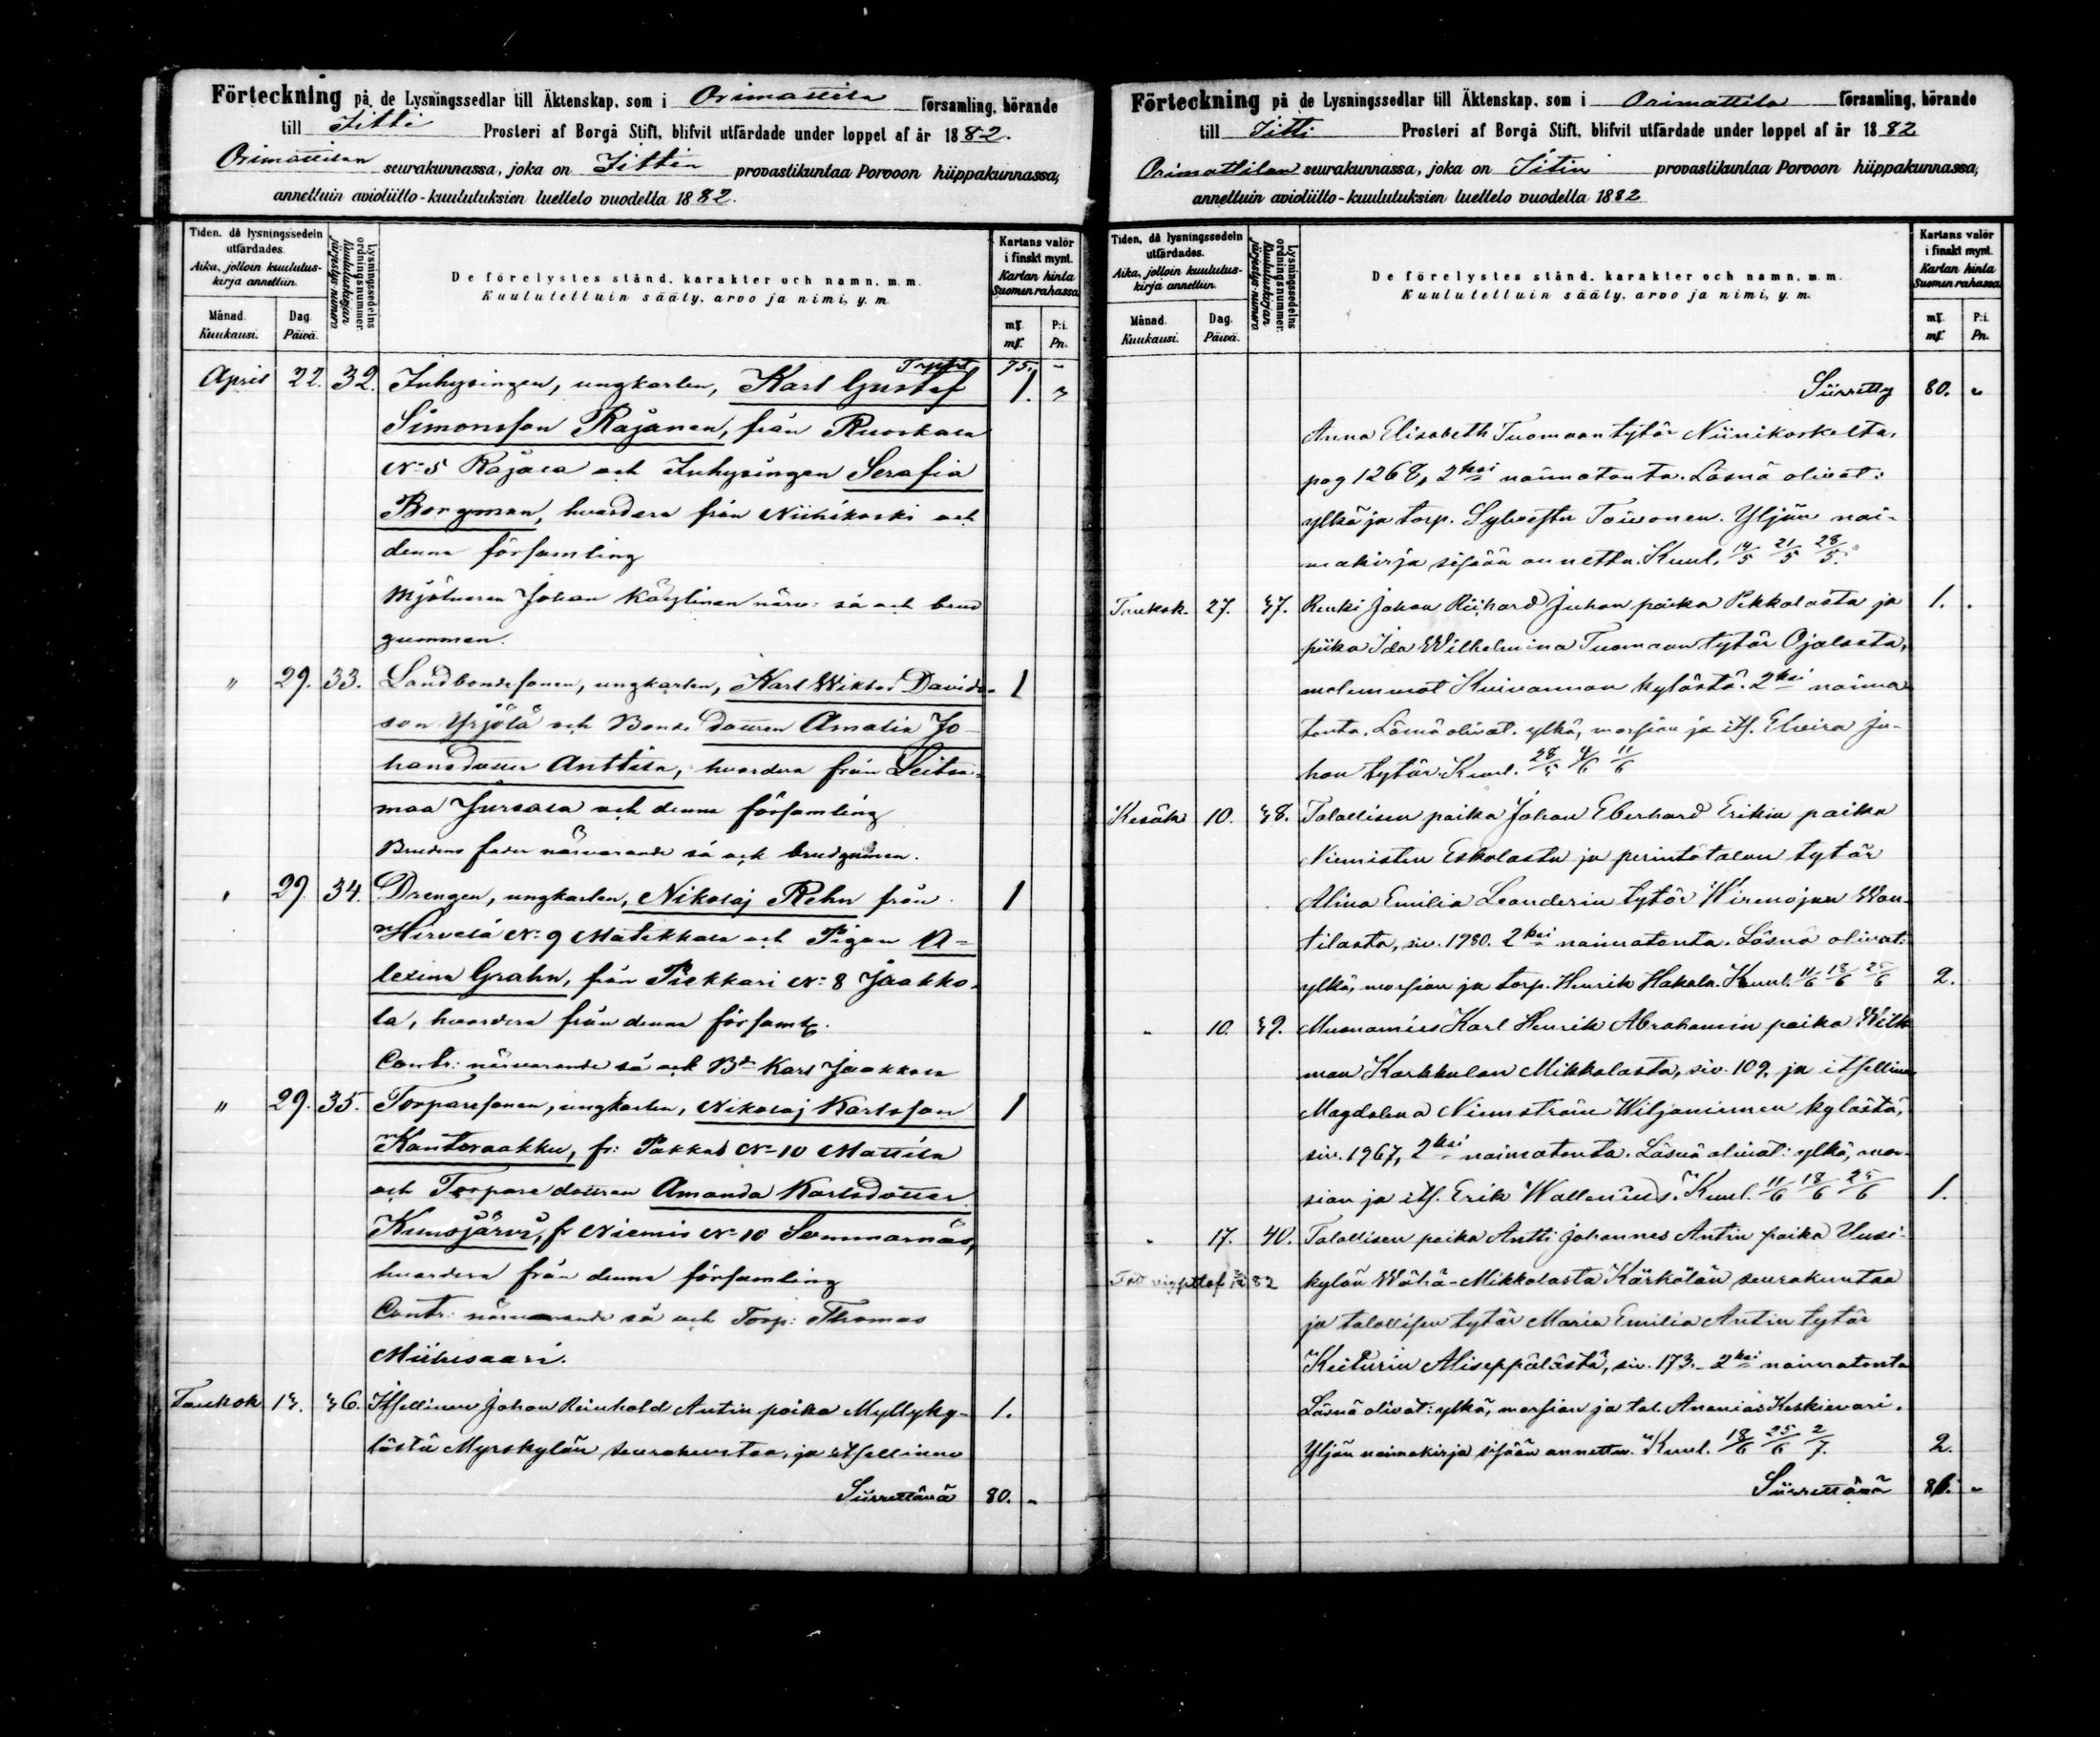 Förteckning på de Lysningssedlar till Äktenskap, som i Orimattila församling, hörande
till Jitti Prosteri af Borgå Stift, blifvit utfärdade under loppet af år 1882.
Orimattilan seurakunnassa, joka on Jittin provastikuntaa Porvoon hiippakunnassa,
annettuin avioliitto-kuulutuksien luettelo vuodella 1882.
Tiden, då lysningssedeln utfärdades.
Aika, jolloin kuulutus-kirja annettiin.
Månad. Kuukausi.
Dag. Päivä.
Lysningssedelns ordningsnummer.
Kuulutuskirjan järjestys-numero
De förelystes stånd, karakter och namn, m. m.
Kuulutettuin sääty, arvo ja nimi, y. m.
Kartans valör i finskt mynt.
Kartan hinta Suomen rahassa
mf. P:i.
mf. Pn.
Trpt 75. -
April 22. 32. Inhysingen, ungkarlen, Karl Gustaf 1. "
Simonsson Rajanen, från Ruoskala
No 5 Rajala och Inhysingen Serafia
Borgman, hvardera från Niinikoski och
denna församling
Mjölnaren Johan Käylinen närv: så och brud
gummen.
" 29. 33. Landbondesonen, ungkarlen, Karl Wiktor Davids- 1
son Yrjölä och Bonde dottren Amalia Jo-
hansdotter Anttila, hvardera från Leitsa-
maa Jussala och denna församling
Brudens fader närvarande så och brudgumen.
" 29. 34. Drengen, ungkarlen, Nikolaj Rehn från 1
Hirvelä No 9 Matikkala och Pigan A-
lexina Grahn, från Pickkari No 8 Jaakko-
la, hvardera från denna församl.
Contr: närvarande så och Bd Karl Jaakkola
" 29. 35. Torparesonen, ungkarlen, Nikolaj Karlsson 1
Kantoraakku, fr: Pakkas No 10 Mattila
och Torpare dottren Amanda Karlsdotter
Kumojärvi, fr Niemis No 10 Sommarnäs,
hvardera från denna församling
Contr: närvarande så och Torp: Thomas
Miihesaari.
Toukok. 13. 36. Itsellinen Johan Reinhold Antin poika Myllyky- 1.
lästä Myrskylän seurakuntaa, ja itsellinen
Siirrettävä 80. "
Förteckning på de Lysningssedlar till Äktenskap, som i Orimattila församling, hörande
till Jitti Prosteri af Borgå Stift, blifvit utfärdade under loppet af år 1882
Orimattilan seurakunnassa, joka on Jitin provastikuntaa Porvoon hiippakunnassa,
annettuin avioliitto-kuulutuksien luettelo vuodella 1882
Tiden, då lysningssedeln utfärdades.
Aika, jolloin kuulutus-kirja annettiin.
Månad. Kuukausi.
Dag. Päivä.
Lysningssedelns ordningsnummer.
Kuulutuskirjan järjestys-numero
De förelystes stånd, karakter och namn, m. m.
Kuulutettuin sääty, arvo ja nimi, y. m.
Kartans valör i finskt mynt.
Kartan hinta Suomen rahassa.
mf. P:i.
mf. Pn.
Siirretty 80. "
Anna Elisabeth Tuomaan tytär Niinikoskelta,
pag 1268, 2ksi naimatonta. Läsnä olivat:
ylkä ja torp. Sylvester Toivonen. Yljän nai-
makirja sisään annettu. Kuul. 14/5 21/5 28/5.
Toukok. 27. 37. Renki Johan Rikhard Juhan poika Pekkalasta ja 1.
piika Ida Wilhelmina Tuomaan tytär Ojalasta,
molemmat Kuivannon kylästä. 2ksi naima-
tonta. Läsnä olivat: ylkä, morsian ja its. Elvira Ju-
han tytär. Kuul. 28/5 4/6 11/6
Kesäk. 10. 38. Talollisen poika Johan Eberhard Erikin poika
Niemisten Eskolasta ja perintötalon tytär
Alina Emilia Leanderin tytär Wirenojan Wan-
tilasta, siv. 1980. 2ksi naimatonta. Läsnä olivat:
ylkä, morsian ja torp. Henrik Hakala. Kuul. 11/6 18/6 25/6 2.
" 10. 39. Muonamies Karl Henrik Abrahamin poika Wilk-
man Karkkulan Mikkolasta, siv. 109, ja itsellinen
Magdalena Niemström Wiljaniemen kylästä,
siv. 1967, 2ksi naimatonta. Läsnä olivat: ylkä, mor-
sian ja its. Erik Wallenius. Kuul. 11/6 18/6 25/6 1.
" 17. 40. Talollisen poika Antti Johannes Antin poika Uusi-
kylän Wähä-Mikkolasta Kärkölän seurakuntaa
ja talollisen tytär Maria Emilia Antin tytär
Keiturin Aliseppälästä, siv. 173. 2ksi naimatonta
Läsnä olivat: ylkä, morsian ja tal. Ananias Keskievari.
Yljän naimakirja sisään annettu. Kuul. 18/6 25/6 2/7. 2.
Siirrettävä 86. "